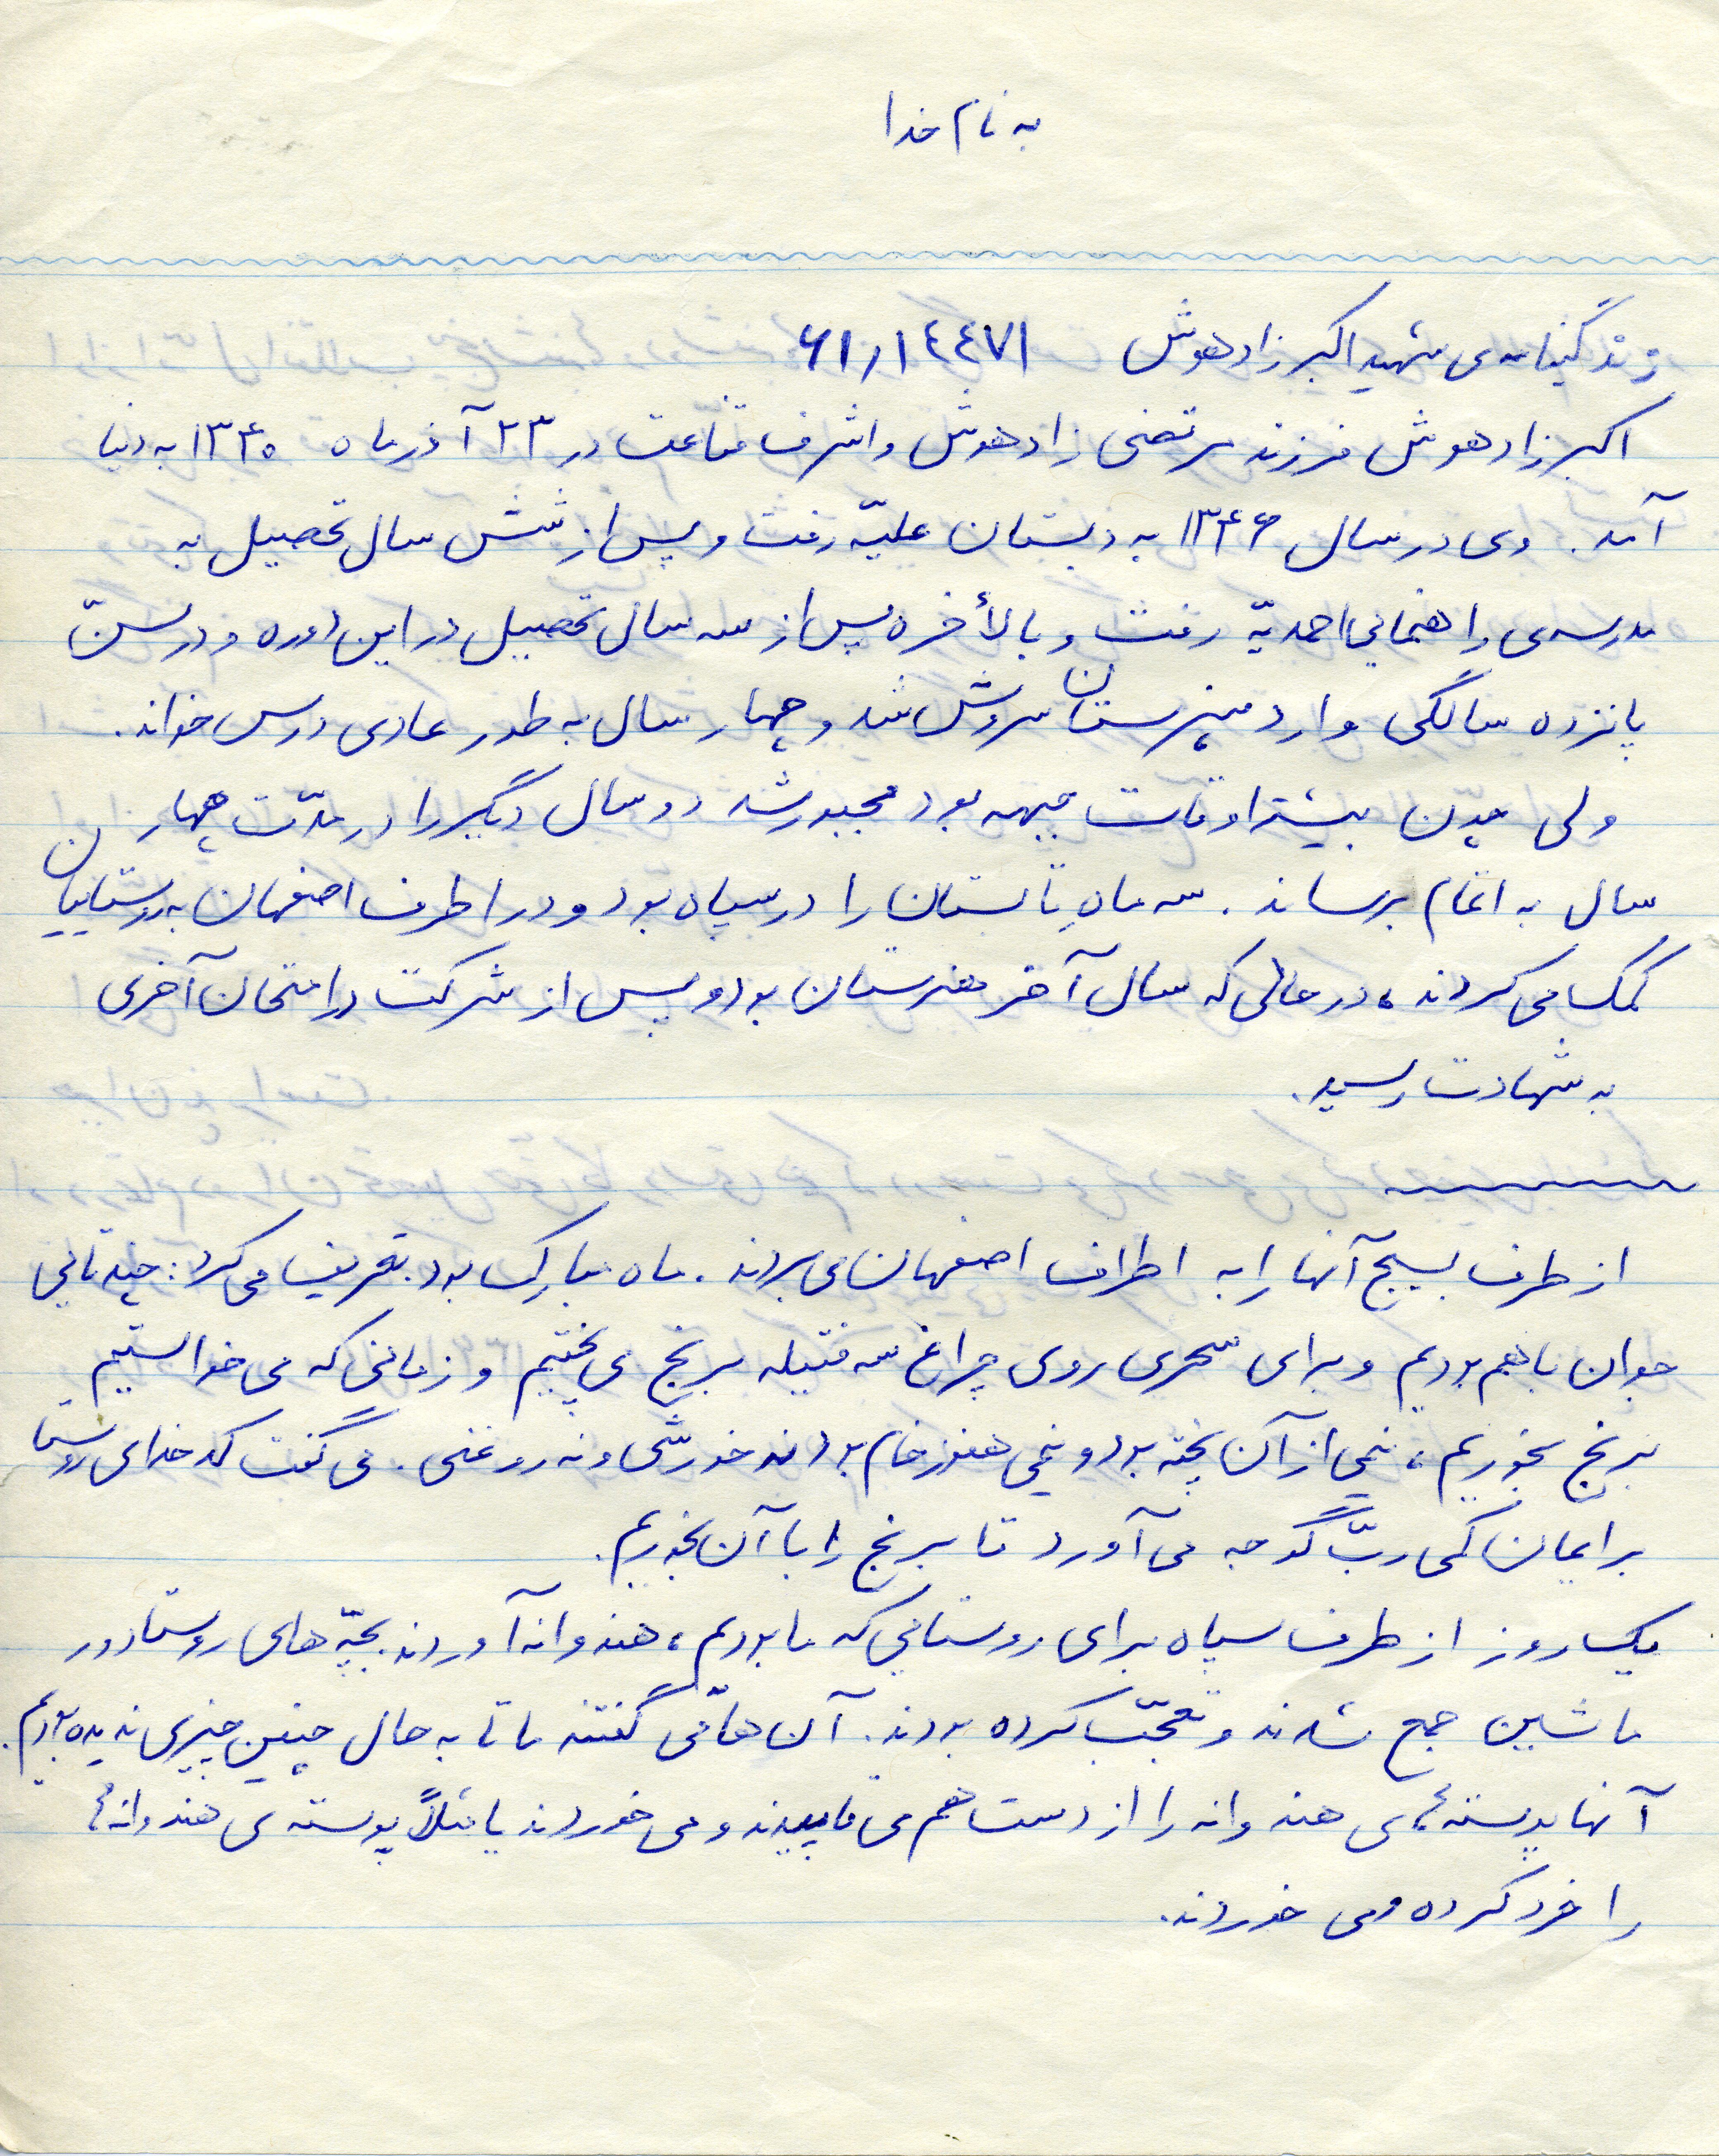 به نام خدا
زندگینامه‌ی شهید اکبر زادهوش ۶۱/۱٤٤۷۱
اکبر زادهوش فرزند مرتضی زادهوش و اشرف قناعت در ۲۳ آذرماه ۱۳۴۰ به دنیا
آمد. وی در سال ۱۳۴۶ به دبستان علیّه رفت و پس از شش سال تحصیل به
مدرسه‌ی راهنمایی احمدیّه رفت و بالأخره پس از سه سال تحصیل در این دوره و در سنّ
پانزده سالگی وارد هنرستان سروش شد و چهار سال به طور عادی درس خواند.
ولی چون بیشتر اوقات جبهه بود مجبور شد دو سال دیگر را در مدّت چهار
سال به اتمام برساند. سه ماهِ تابستان را در سپاه بود و در اطرف اصفهان به روستاییان
کمک می کردند، در حالی که سال آخر هنرستان بود و پس از شرکت در امتحان آخری
به شهادت رسید.
از طرف بسیج آنها را به اطراف اصفهان می بردند. ماه مبارک بود. تعریف می کرد: چند تایی
جوان با هم بودیم و برای سحری روی چراغ سه فتیله برنج می پختیم و زمانی که می خواستیم
برنج بخوریم، نیمی از آن پخته بود و نیمی هنوز خام بود نه خورشی و نه روغنی. می گفت کدخدای روستا
برایمان کمی ربّ گوجه می آورد تا برنج را با آن بخوریم.
یک روز از طرف سپاه برای روستایی که ما بودیم، هندوانه آوردند. بچّه های روستا دور
ماشین جمع شدند و تعجّب کرده بودند. آن ها می گفتند ما تا به حال چنین چیزی ندیده بودیم.
آنها پوسته ی هندوانه را از دست هم می قاپیدند و می خوردند یا مثلاً پوسته ی هندوانه
را خرد کرده و می خوردند.